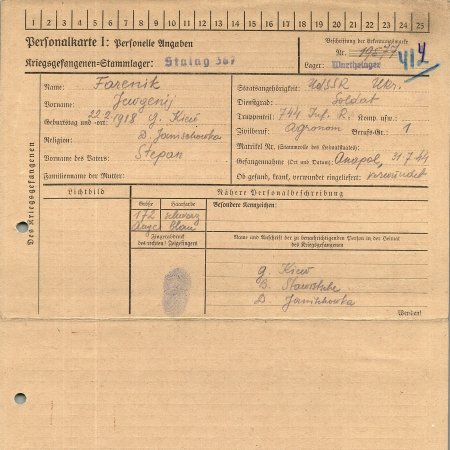 1 2 3 4 5 6 7 8 9 10 11 12 13 14 15 16 17 18 19 20 21 22 23 24 25
Personalkarte I: Personelle Angaben
Kriegsgefangenen-Stammlager: Stalag 367
Beschriftung der Erkennungsmarke
Nr. 19577
Lager: Warthelager
Des Kriegsgefangenen
Name: Farenik
Vorname: Jewgenij
Geburtstag und -ort: 22.2.1918 g. Kiew
Religion: D. Janischowka
Vorname des Vaters: Stepan
Familienname der Mutter:
Staatsangehörigkeit: UdSSR Ukr.
Dienstgrad: Soldat
Truppenteil: 744 Inf. R. Komp. usw.:
Zivilberuf: Agronom Berufs-Gr.: 1
Matrikel Nr. (Stammrolle des Heimatstaates):
Gefangennahme (Ort und Datum): Anapol, 31.7.44
Ob gesund, krank, verwundet eingeliefert: verwundet
Lichtbild
Nähere Personalbeschreibung
Größe Haarfarbe
172 schwarz
Auge blau
Besondere Kennzeichen:
Fingerabdruck
des rechten! Zeigefingers
Name und Anschrift der zu benachrichtigenden Person in der Heimat
des Kriegsgefangenen
g. Kiew
D. Janischowka
Wenden!